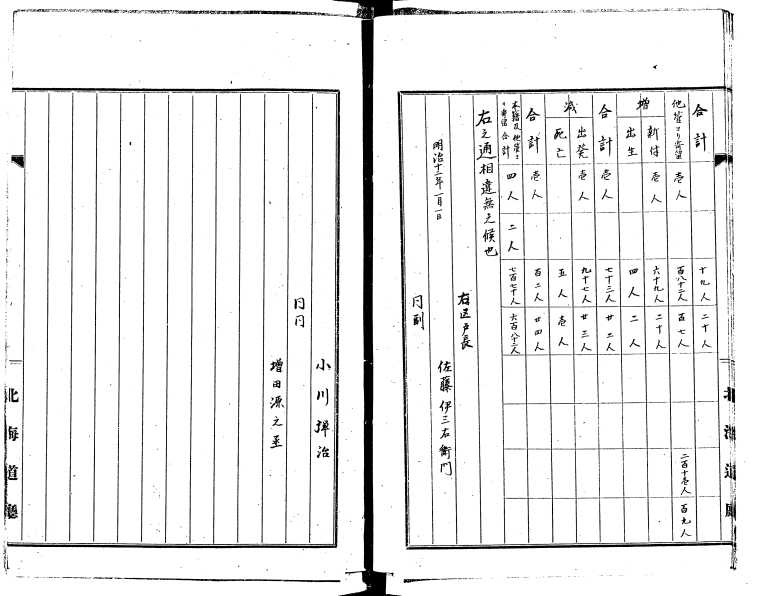 合計 十九人 二十人
他管ヨリ寄留 壱人 百八十二人 百七人 二百十壱人 百九人
増 新付 壱人 六十九人 二十人
出生 四人 二人
合計 壱人 七十三人 廿二人
減 出発 壱人 九十七人 廿三人
死亡 五人 壱人
合計 壱人 百二人 廿四人
本籍及他管ヨリ寄留合計 四人 二人 七百七十人 六百八十二人
右之通相違無之候也
明治十二年一月一日
右区戸長
佐藤伊三右衛門
同副
小川弾治
同同
増田源之丞
北海道庁
北海道廳